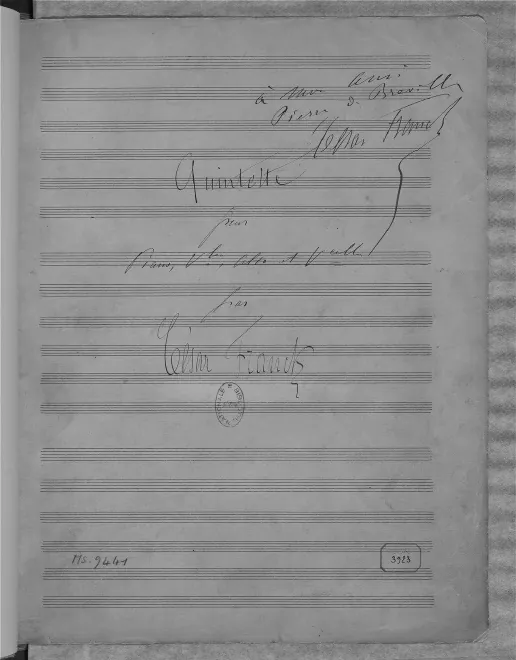 à mon ami
Pierre de Bréville
César Franck
Quintette
pour
Piano, Vlns, Alto et Velle
par
César Franck
Ms. 9441
3923